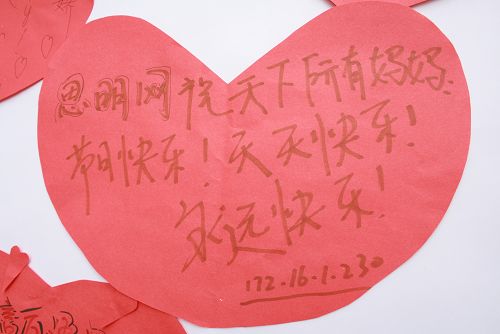 思明网祝天下所有妈妈
节日快乐！天天快乐！
永远快乐！
172.16.1.230